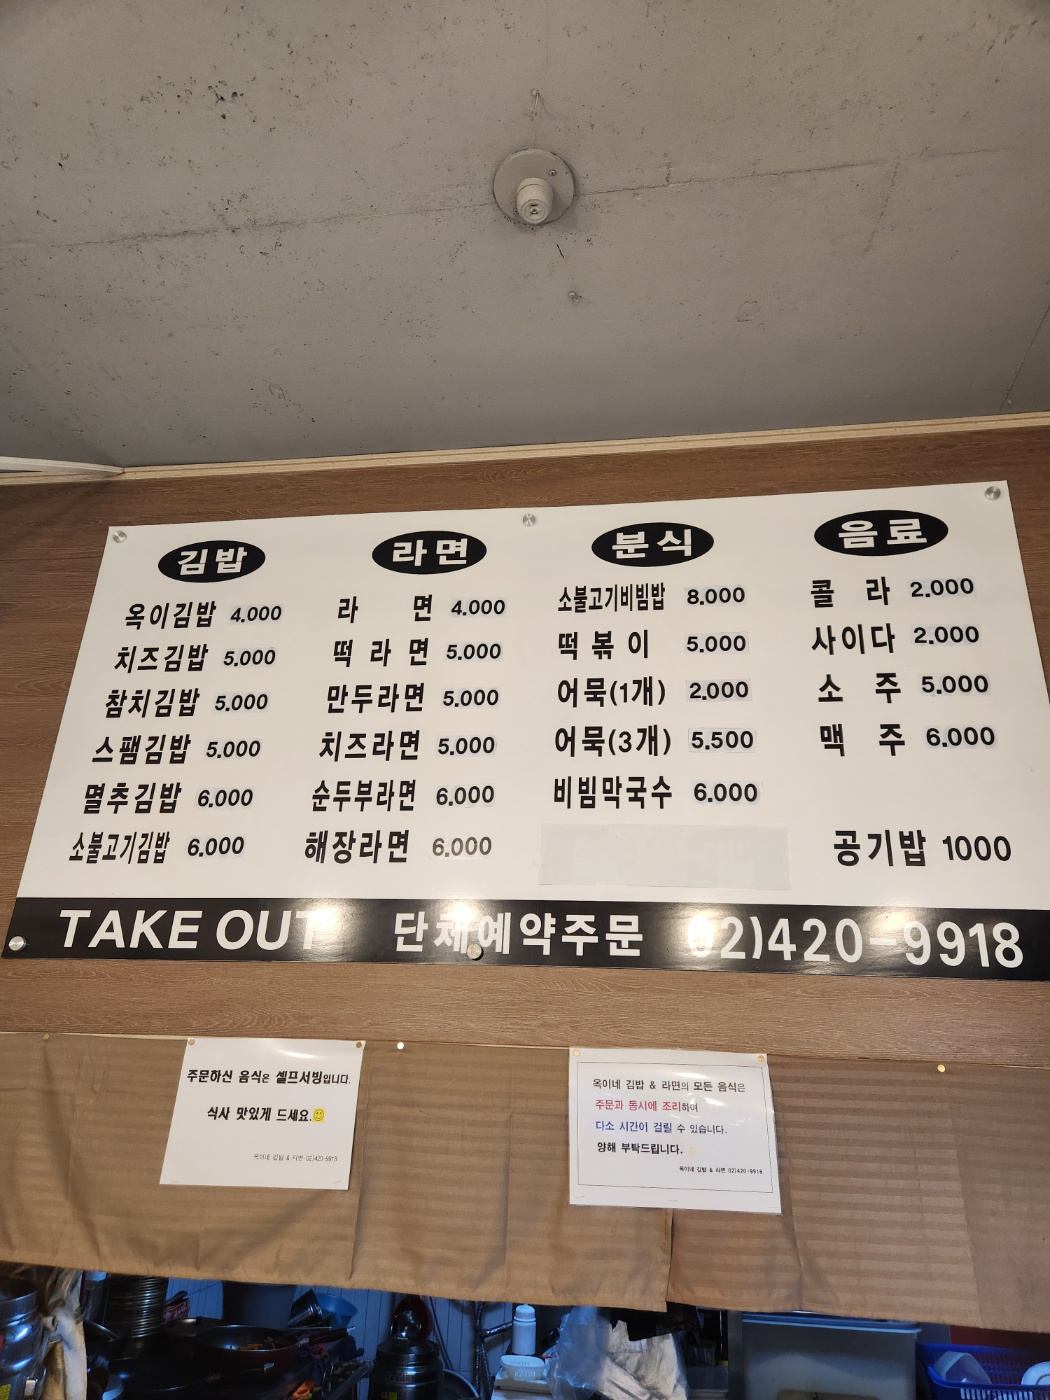 김밥
옥이김밥 4.000
치즈김밥 5.000
참치김밥 5.000
스팸김밥 5.000
멸추김밥 6.000
소불고기김밥 6.000
라면
라 면 4.000
떡 라 면 5.000
만두라면 5.000
치즈라면 5.000
순두부라면 6.000
해장라면 6.000
분식
소불고기비빔밥 8.000
떡 볶 이 5.000
어묵(1개) 2.000
어묵(3개) 5.500
비빔막국수 6.000
음료
콜 라 2.000
사이다 2.000
소 주 5.000
맥 주 6.000
공기밥 1000
TAKE OUT 단체예약주문 02)420-9918
주문하신 음식은 셀프서빙입니다.
식사 맛있게 드세요.
옥이네 김밥 & 라면 02)420-9918
옥이네 김밥 & 라면의 모든 음식은
주문과 동시에 조리하여
다소 시간이 걸릴 수 있습니다.
양해 부탁드립니다.
옥이네 김밥 & 라면 02)420-9918